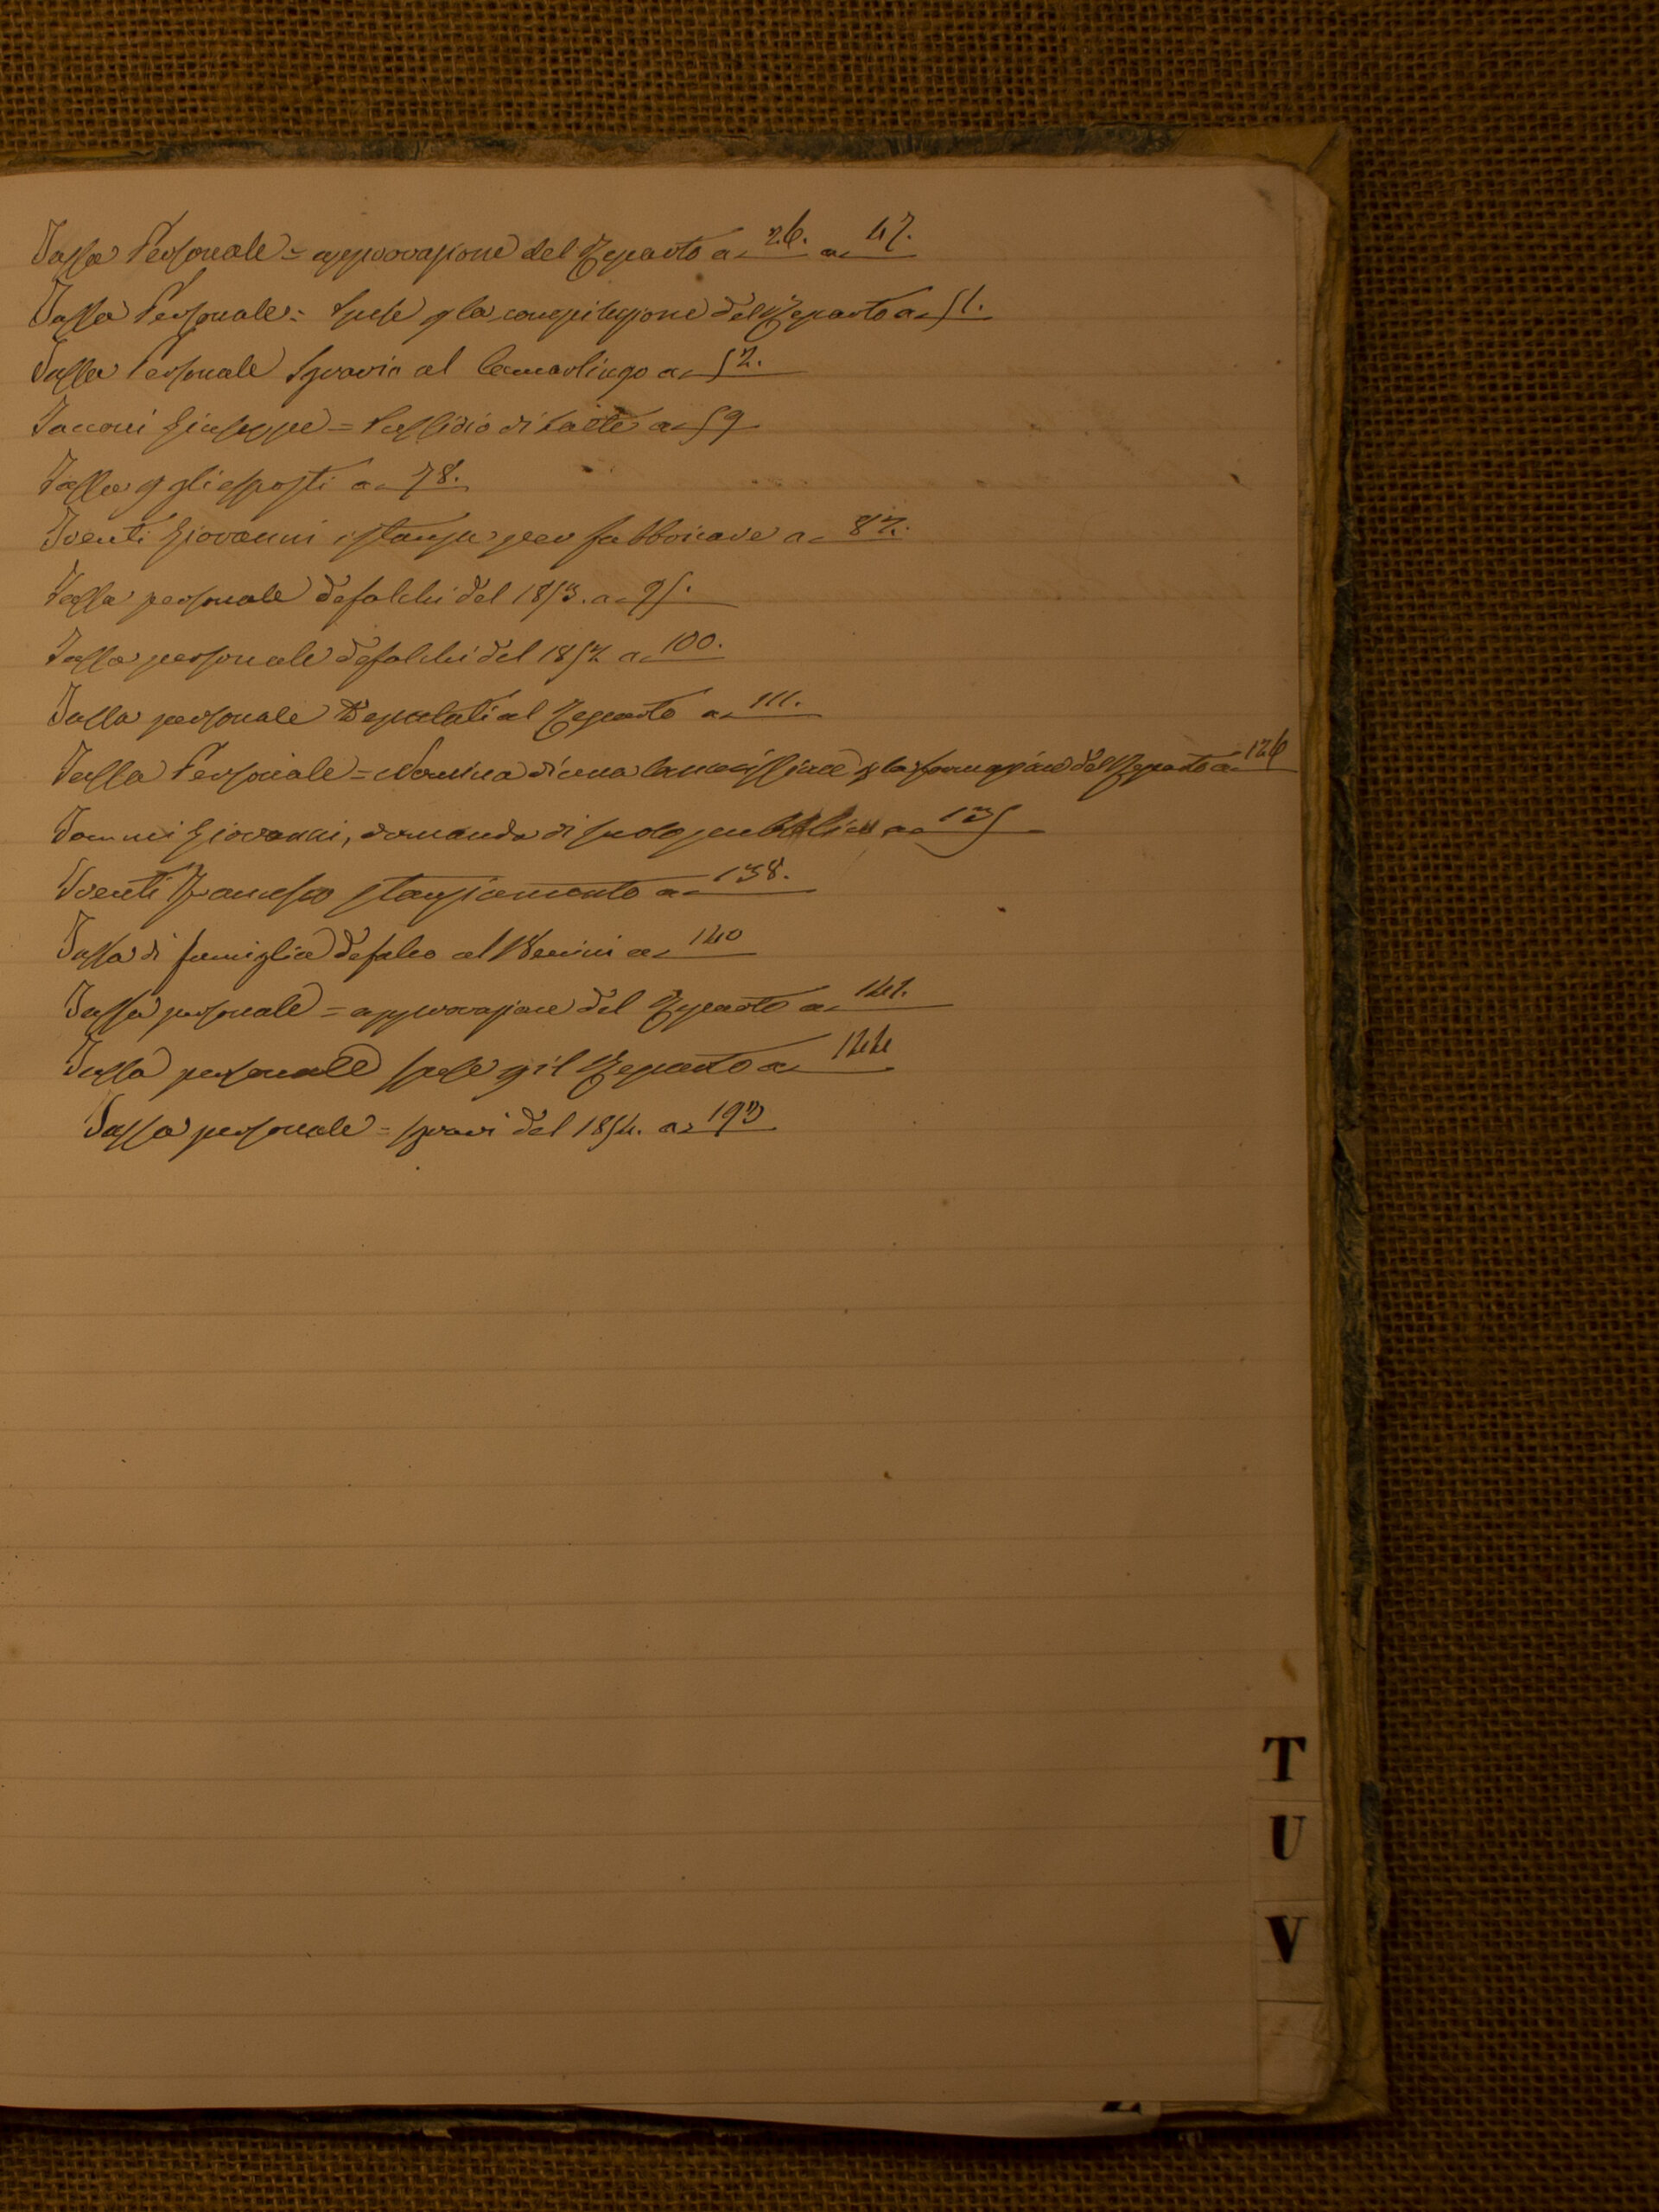 Tassa Personale = approvazione del Reparto a 26. a 47.
Tassa Personale = Spese p la compilazione del Reparto a 51.
Tassa Personale Sgravio al Camarlingo a 52.
Tacconi Giuseppe = Sussidio di Latte a 59
Tassa p gli esposti a 78.
Trenti Giovanni istanza per fabbricare a 82.
Tassa personale defalchi del 1853. a 95.
Tassa personale defalchi del 1852 a 100.
Tassa personale Deputati al Reparto a 111.
Tassa Personale = Nomina di una Commissione p la formazione del Reparto a 126
Giovanni, domanda di suolo pubblico a 135
Trenti Francesco stanziamento a 138.
Tassa di famiglia defalco al Benini a 140
Tassa personale = approvazione del Reparto a 141.
Tassa personale spese p il Reparto a 144
Tassa personale = sgravi del 1854. a 193
T
U
V
Z